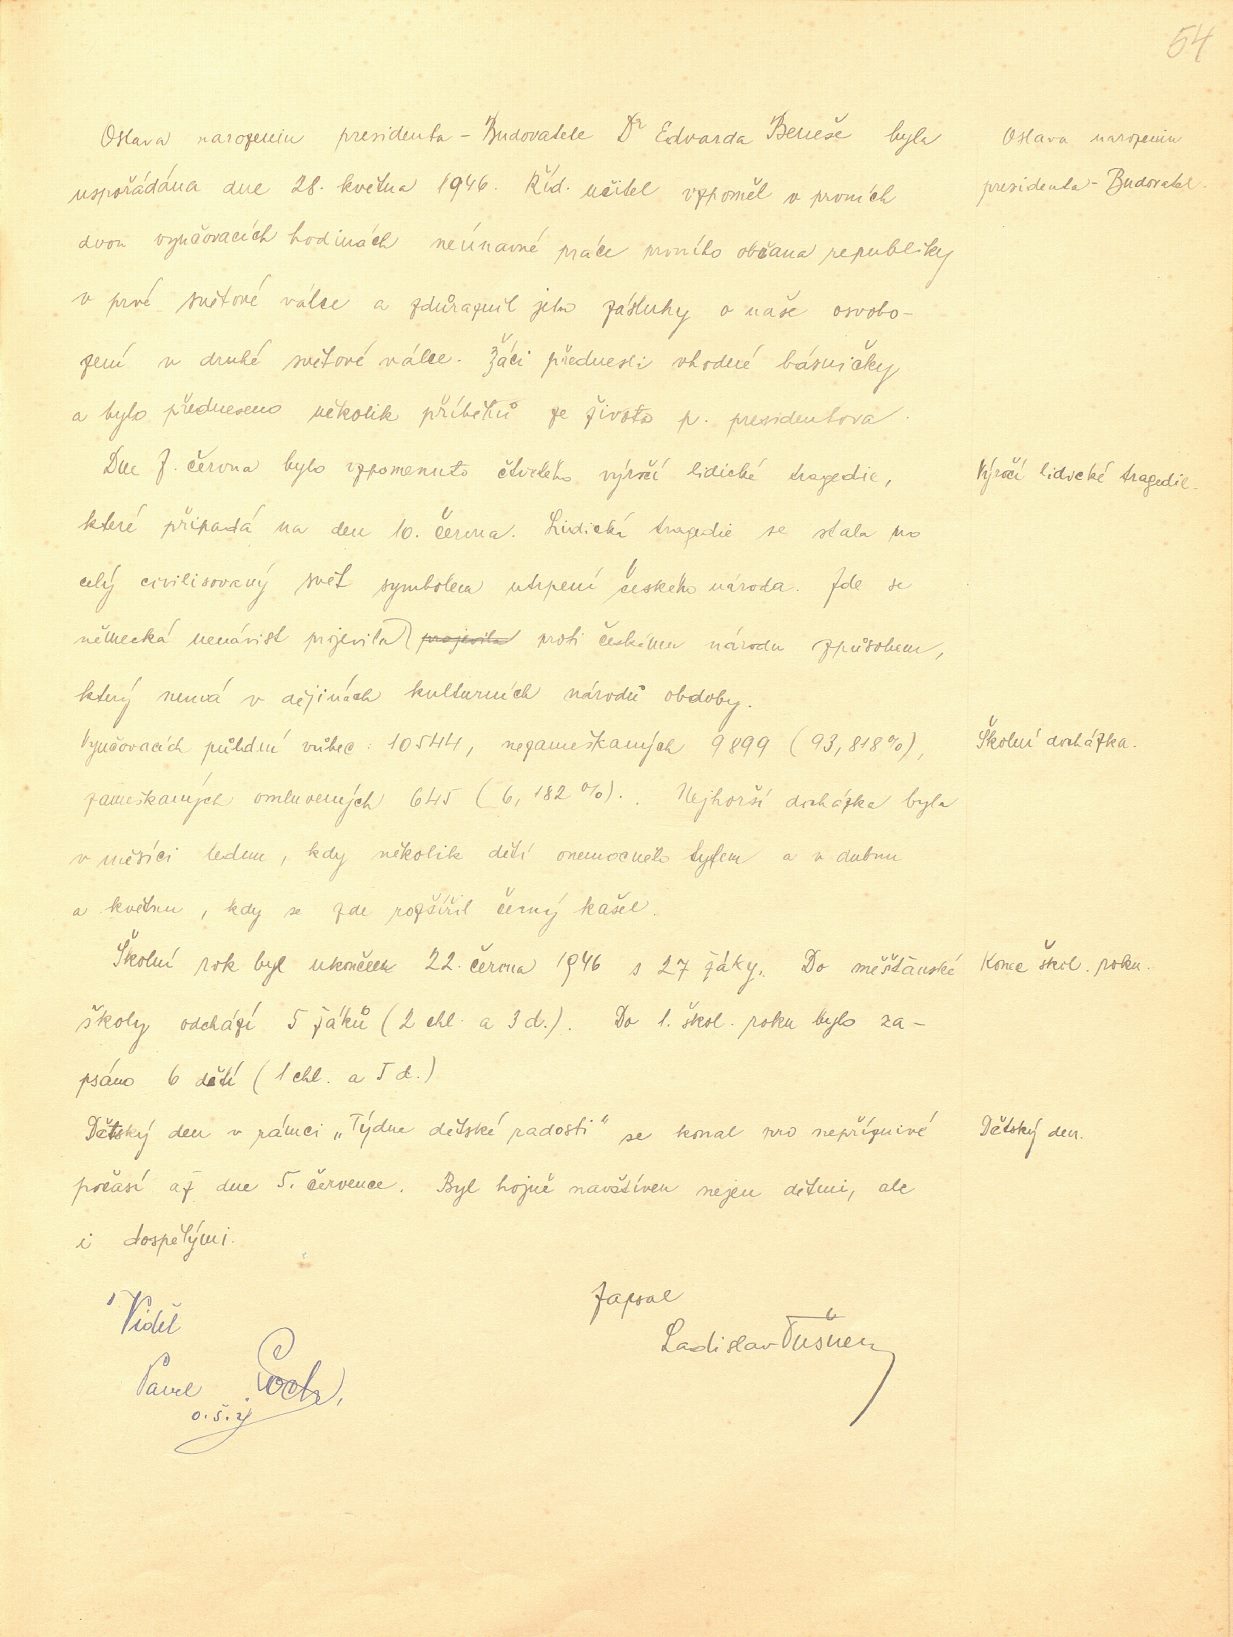 54
Oslava narozenin presidenta - Budovatele Dr Edvarda Beneše byla
uspořádána dne 28. května 1946. Říd. učitel vzpoměl v prvních
dvou vyučovacích hodinách neúnavné práce prvního občana republiky
v prvé světové válce a zdůraznil jeho zásluhy o naše osvobo-
zení v druhé světové válce. Žáci přednesli vhodné básničky
a bylo předneseno několik příběhů ze života p. presidentova.
Oslava narozenin
presidenta - Budovatel.
Dne 7. června bylo vzpomenuto čtvrtého výročí lidické tragedie,
které připadá na den 10. června. Lidická tragedie se stala pro
celý civilisovaný svět symbolem utrpení českého národa. Zde se
německá nenávist projevila projevila proti českému národu způsobem,
který nemá v dějinách kulturních národů obdoby.
Výročí lidické tragedie.
Vyučovacích půldní vůbec: 10544, nezameškaných 9899 (93,818%),
zameškaných omluvených 645 (6,182%). Nejhorší docházka byla
v měsíci lednu, kdy několik dětí onemocnělo tyfem a v dubnu
a květnu, kdy se zde rozšířil černý kašel.
Školní docházka.
Školní rok byl ukončen 22. června 1946 s 27 žáky. Do měšťanské
školy odchází 5 žáků (2 chl. a 3 d.). Do 1. škol. roku bylo za-
psáno 6 dětí (1 chl. a 5 d.)
Konec škol. roku.
Dětský den v rámci „Týdne dětské radosti" se konal pro nepříznivé
počasí až dne 5. července. Byl hojně navštíven nejen dětmi, ale
i dospělými.
Dětský den.
Viděl
Pavel
o.š.i.
Zapsal
Ladislav Tušner